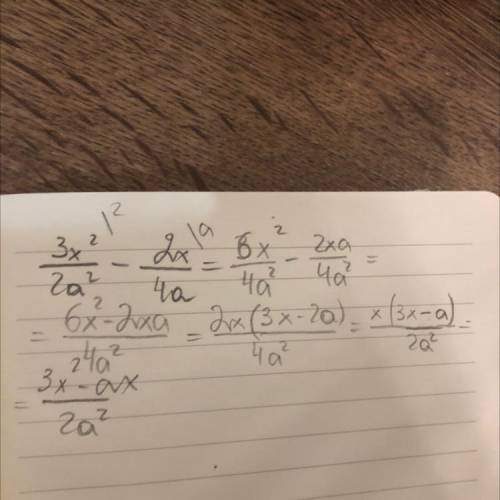 3x²/2a² \² - 2x/4a \ª = 6x²/4a² - 2xa/4a² =
= 6x²-2xa/4a² = 2x(3x-2a)/4a² = x(3x-a)/2a² =
= 3x²-ax/2a²